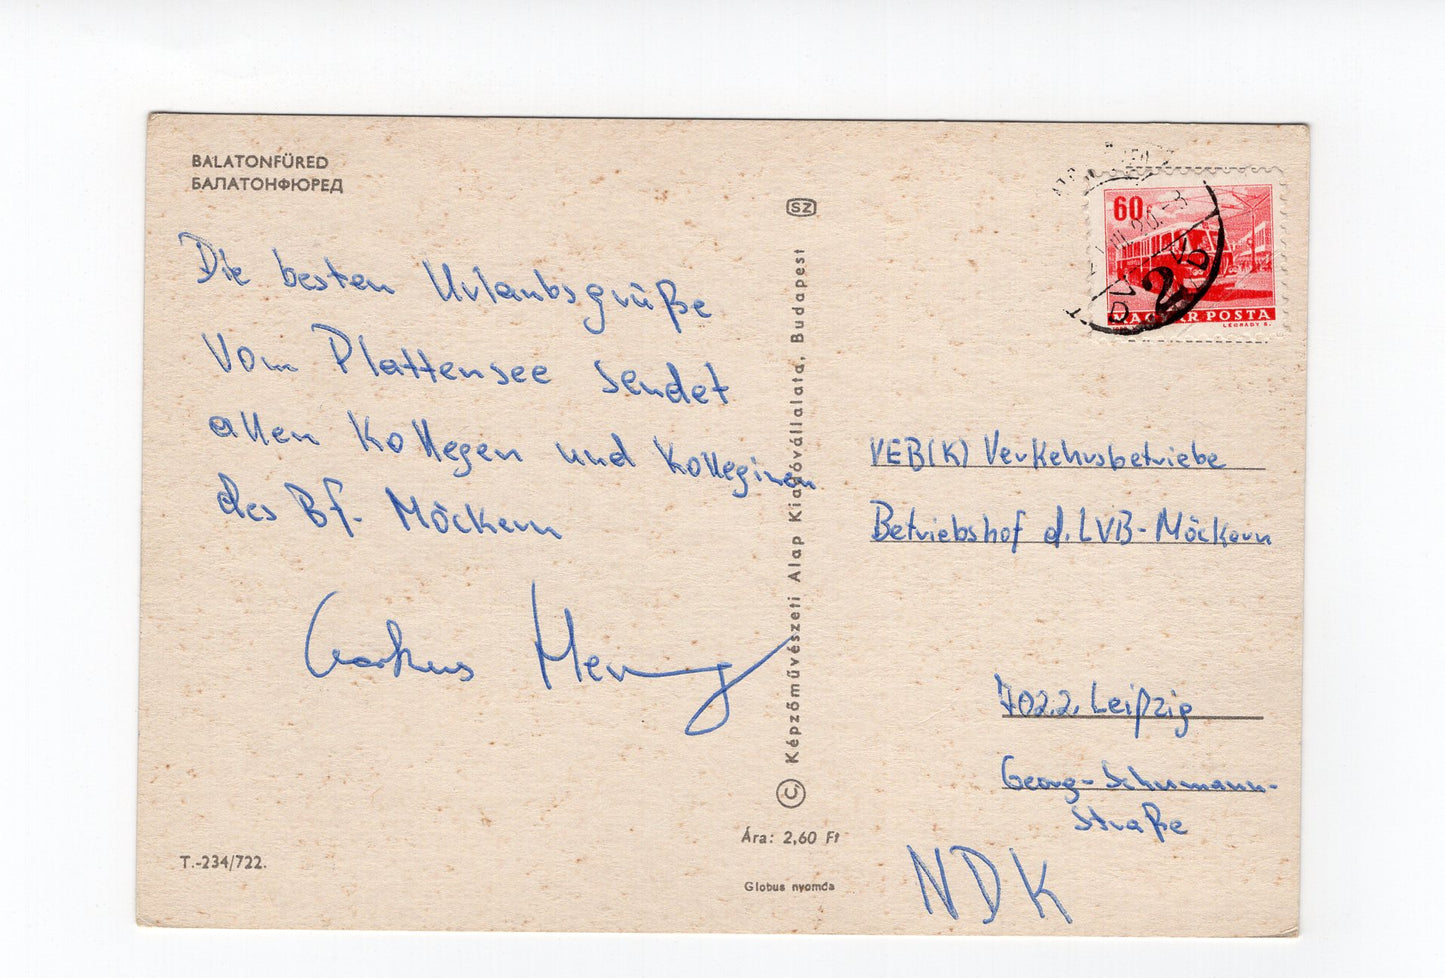 BALATONFÜRED
БАЛАТОНФЮРЕД
Die besten Urlaubsgrüße
vom Plattensee sendet
allen Kollegen und Kolleginen
des Bf. Möckern
T.-234/722.
SZ
© Képzőművészeti Alap Kiadóvállalata, Budapest
Ára: 2,60 Ft
Globus nyomda
60f
MAGYAR POSTA
LÉGRÁDY S.
2
VEB(K) Verkehrsbetriebe
Betriebshof d. LVB-Möckern
7022 Leipzig
Georg-Schumann-
Straße
NDK